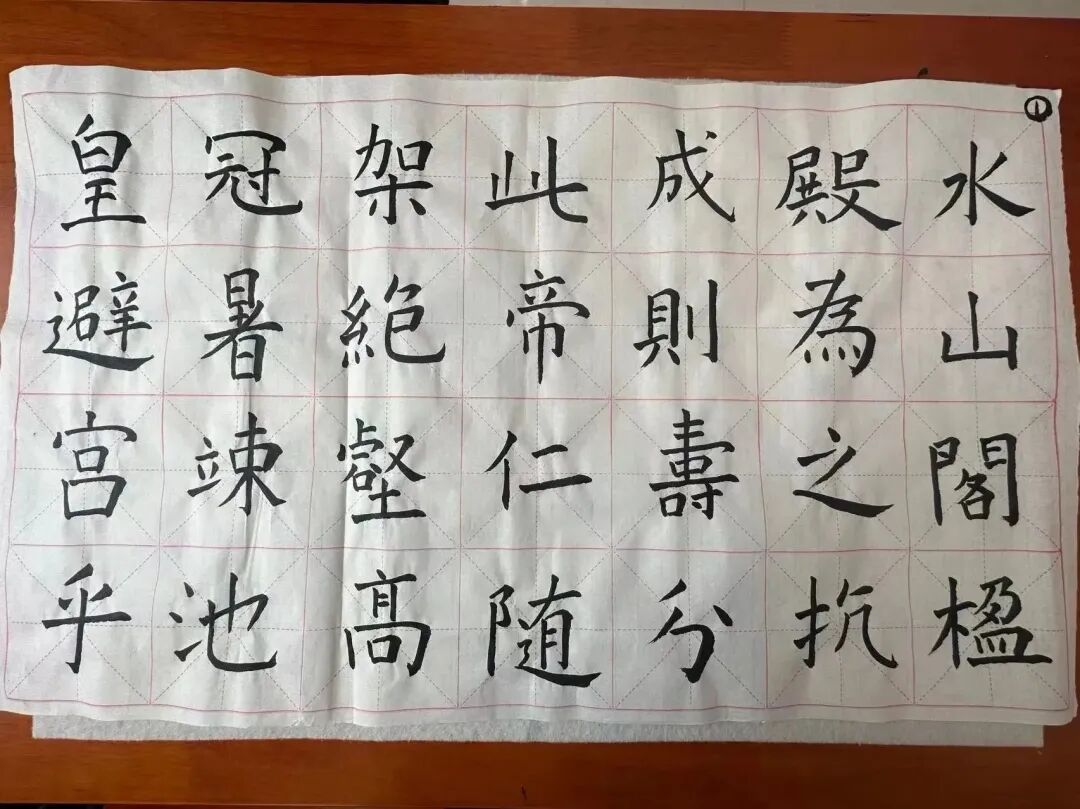 ①
水山閣楹
殿為之抗
成則壽分
此帝仁随
架絶壑髙
冠暑竦池
皇避宫乎